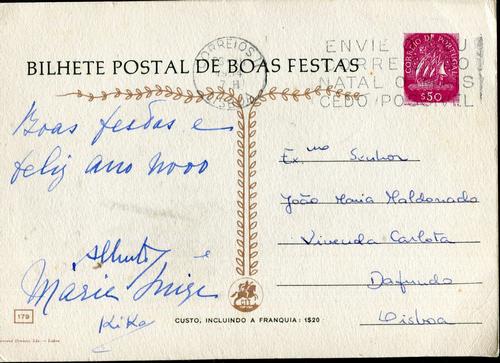 BILHETE POSTAL DE BOAS FESTAS
CORREIOS
ENVIE O SEU
CORREIO DO
NATAL O MAIS
CEDO POSSIVEL
CORREIO DE PORTUGAL
$50
Boas festas e
feliz ano novo
Alberto e
Maria Luiza
Kika
Exmo Senhor
João Maria Maldonado
Vivenda Carlota
Dafundo
Lisboa
179
CUSTO, INCLUINDO A FRANQUIA: 1$20
Lisboa